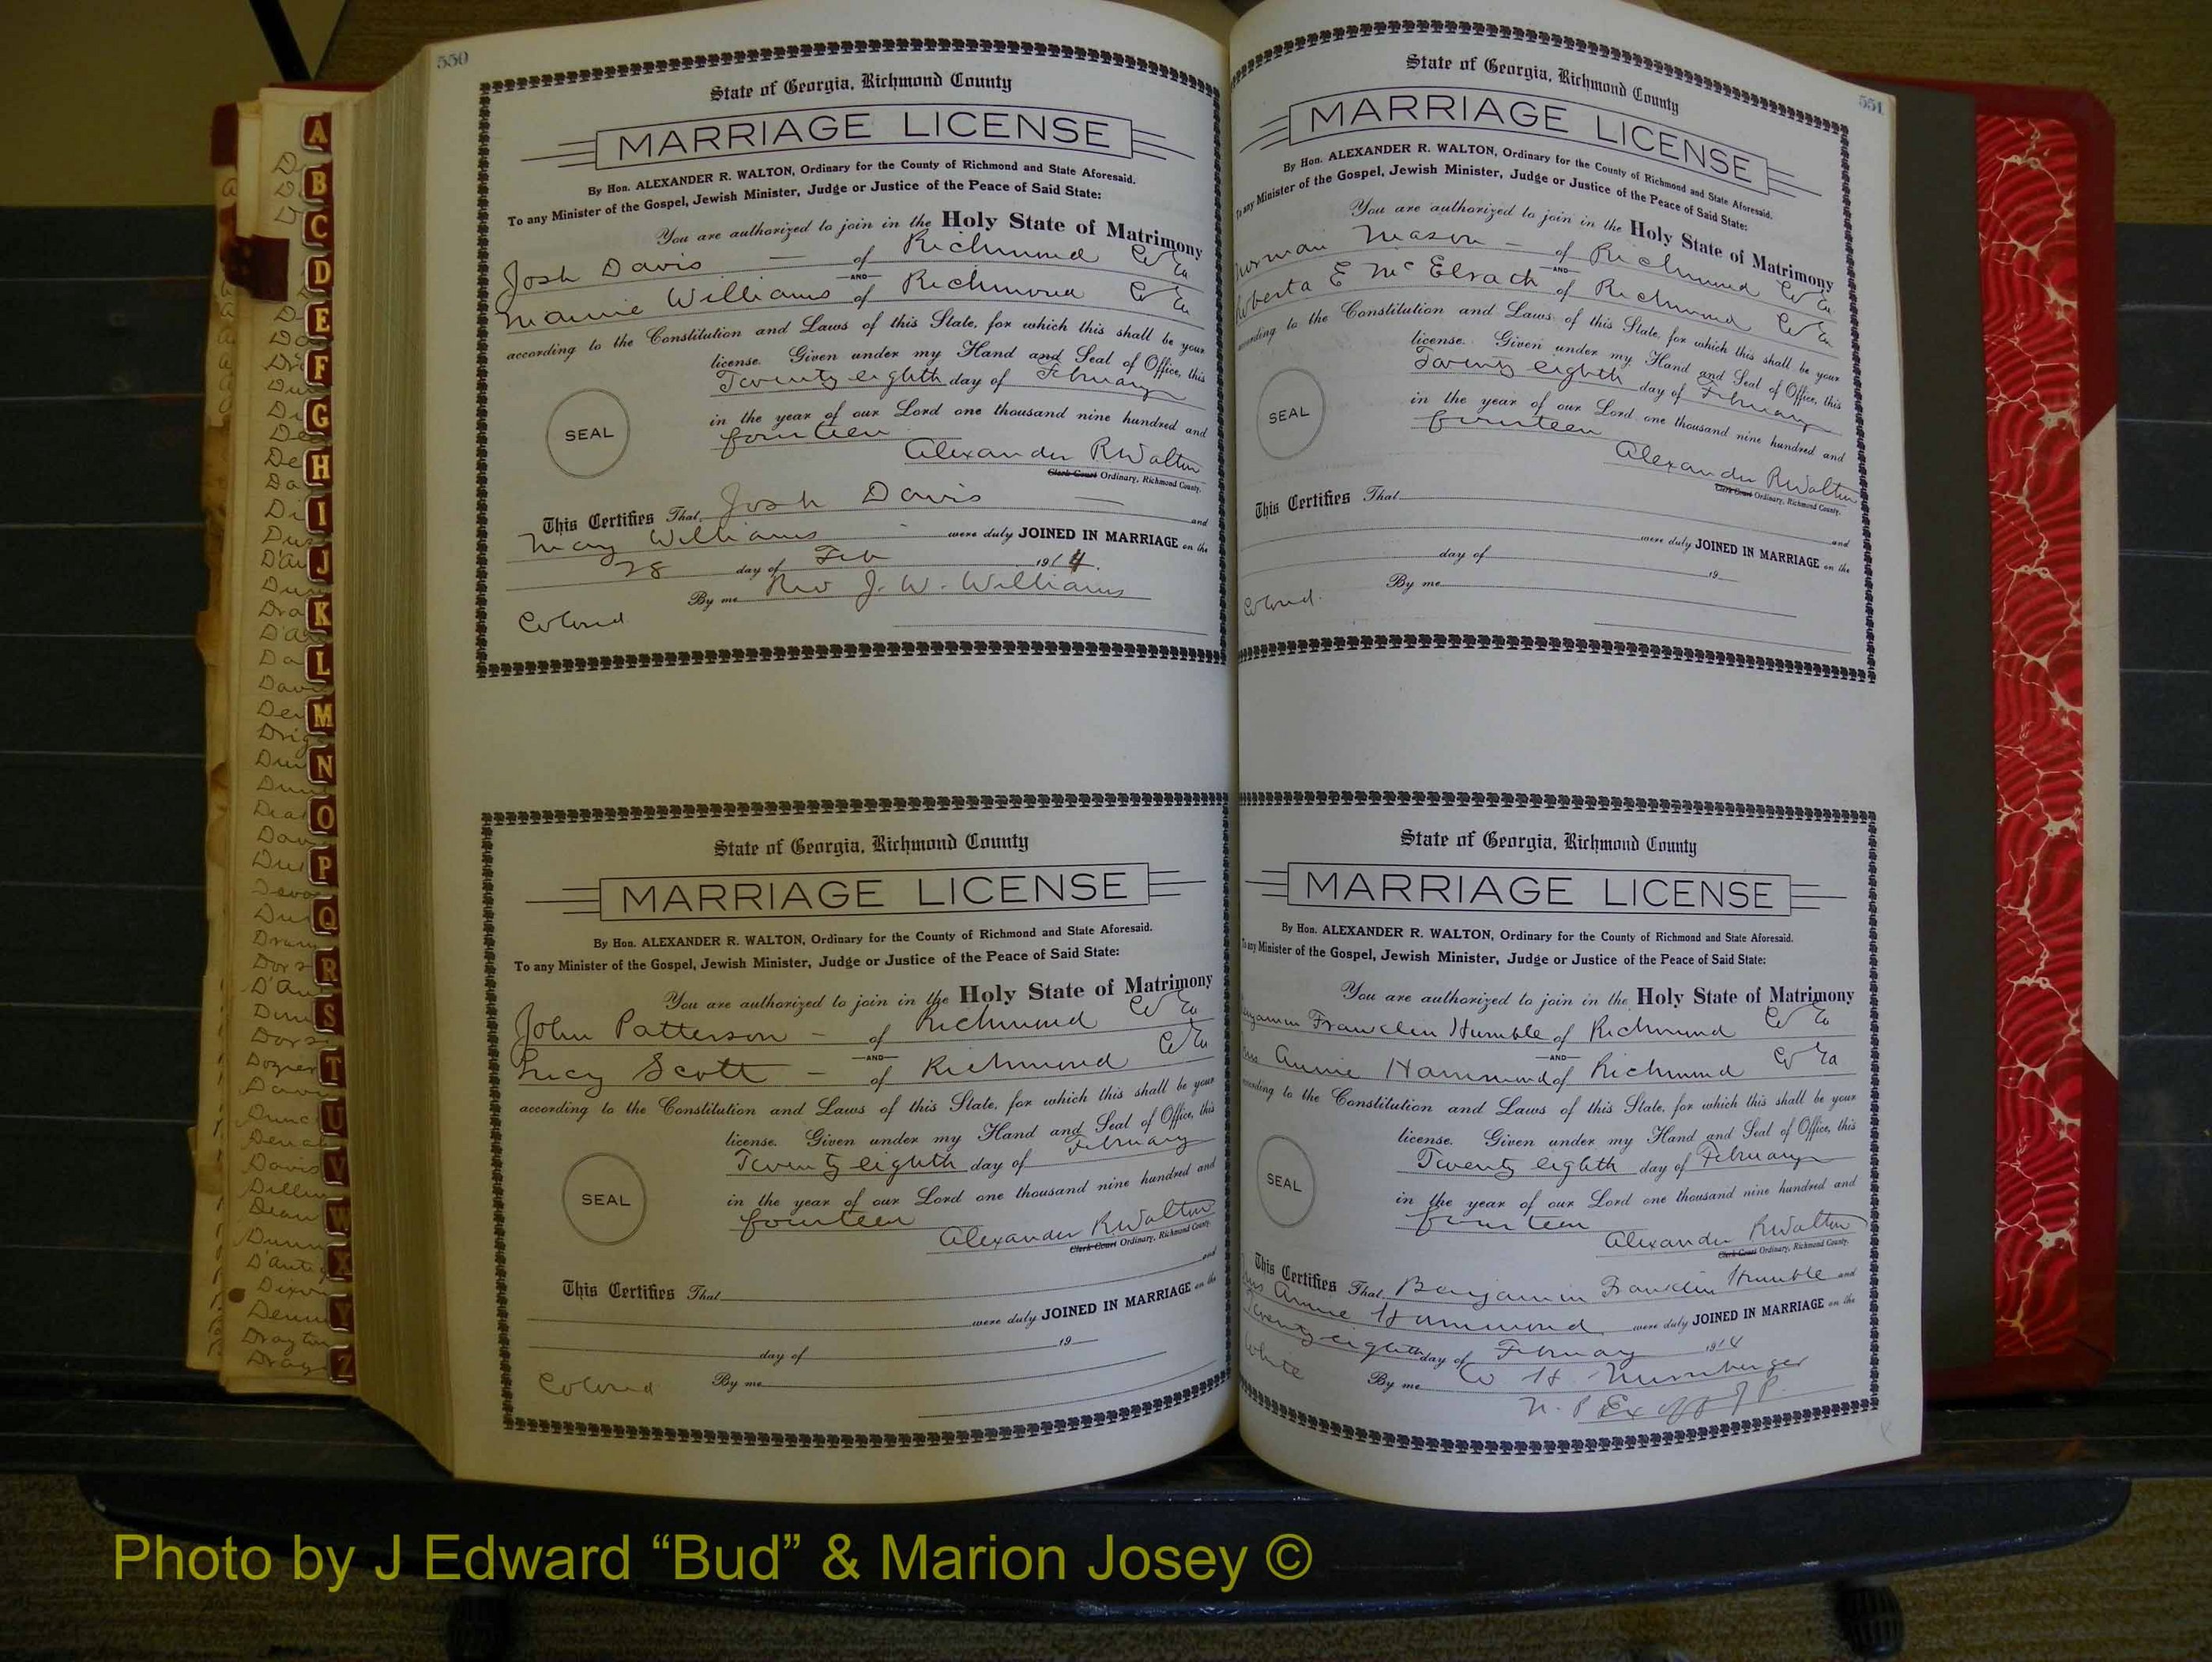 550
State of Georgia, Richmond County
MARRIAGE LICENSE
By Hon. ALEXANDER R. WALTON, Ordinary for the County of Richmond and State Aforesaid.
To any Minister of the Gospel, Jewish Minister, Judge or Justice of the Peace of Said State:
You are authorized to join in the Holy State of Matrimony
Josh Davis — of Richmond Co Ga
AND
Mamie Williams of Richmond Co Ga
according to the Constitution and Laws of this State, for which this shall be your
license. Given under my Hand and Seal of Office, this
Twenty eighth day of February
in the year of our Lord one thousand nine hundred and
fourteen
SEAL
Alexander R Walton
Clerk Court Ordinary, Richmond County.
This Certifies That Josh Davis and
May Williams were duly JOINED IN MARRIAGE on the
28 day of Feb 1914.
By me Rev J. W. Williams
Colored
State of Georgia, Richmond County
MARRIAGE LICENSE
By Hon. ALEXANDER R. WALTON, Ordinary for the County of Richmond and State Aforesaid.
To any Minister of the Gospel, Jewish Minister, Judge or Justice of the Peace of Said State:
You are authorized to join in the Holy State of Matrimony
John Patterson — of Richmond Co Ga
AND
Lucy Scott — of Richmond Co Ga
according to the Constitution and Laws of this State, for which this shall be your
license. Given under my Hand and Seal of Office, this
Twenty eighth day of February
in the year of our Lord one thousand nine hundred and
fourteen
SEAL
Alexander R Walton
Clerk Court Ordinary, Richmond County.
This Certifies That and
were duly JOINED IN MARRIAGE on the
day of 19
Colored By me
551
State of Georgia, Richmond County
MARRIAGE LICENSE
By Hon. ALEXANDER R. WALTON, Ordinary for the County of Richmond and State Aforesaid.
To any Minister of the Gospel, Jewish Minister, Judge or Justice of the Peace of Said State:
You are authorized to join in the Holy State of Matrimony
Norman Mason — of Richmond Co Ga
AND
Roberta E McElrath of Richmond Co Ga
according to the Constitution and Laws of this State, for which this shall be your
license. Given under my Hand and Seal of Office, this
Twenty eighth day of February
in the year of our Lord one thousand nine hundred and
fourteen
SEAL
Alexander R Walton
Clerk Court Ordinary, Richmond County.
This Certifies That and
were duly JOINED IN MARRIAGE on the
day of 19
By me
Colored.
State of Georgia, Richmond County
MARRIAGE LICENSE
By Hon. ALEXANDER R. WALTON, Ordinary for the County of Richmond and State Aforesaid.
To any Minister of the Gospel, Jewish Minister, Judge or Justice of the Peace of Said State:
You are authorized to join in the Holy State of Matrimony
Benjamin Franklin Humble of Richmond Co Ga
AND
Annie Hammond of Richmond Co Ga
according to the Constitution and Laws of this State, for which this shall be your
license. Given under my Hand and Seal of Office, this
Twenty eighth day of February
in the year of our Lord one thousand nine hundred and
fourteen
SEAL
Alexander R Walton
Clerk Court Ordinary, Richmond County.
This Certifies That Benjamin Franklin Humble and
Annie Hammond were duly JOINED IN MARRIAGE on the
Twenty eighth day of February 1914
White By me H.
N. P Ex off J P.
A
B
C
D
E
F
G
H
I
J
K
L
M
N
O
P
Q
R
S
T
U
V
W
X
Y
Z
Photo by J Edward “Bud” & Marion Josey ©